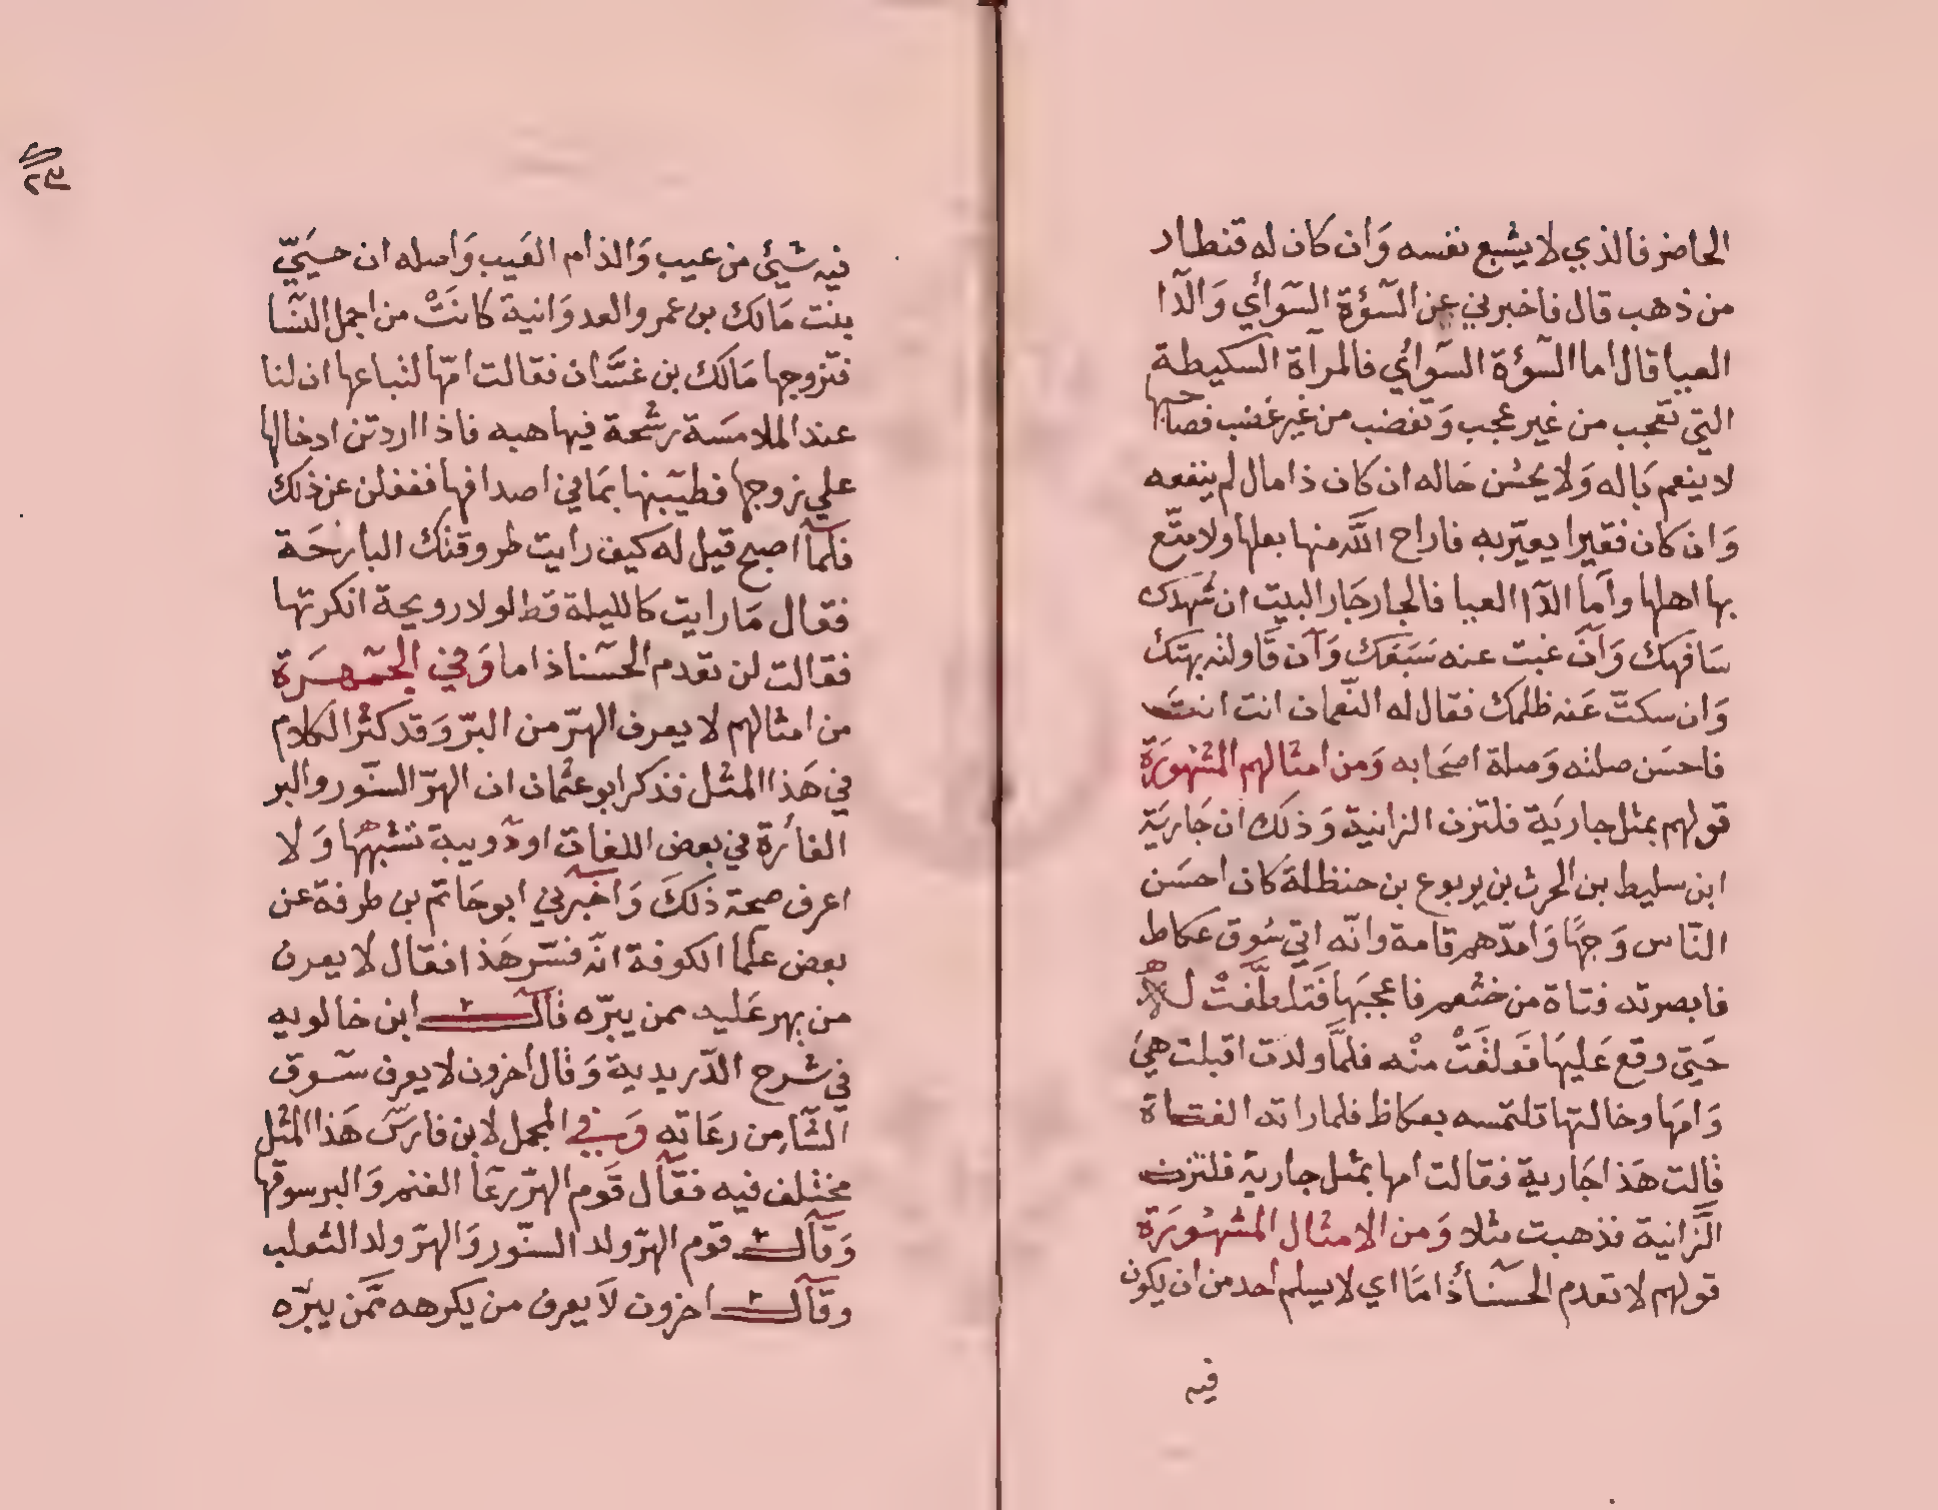 الحاضر فالذي لا يشبع نفسه وَان كان له قنطار
من ذهب قال فاخبرني عن السّؤة السّوائي وَالدّا
العيا قال اما السّؤة السّوائي فالمرآة السكيطة
التي تعجب من غير عجب وَتغضب من غير غضب فصاحبها
لا ينعم بَاله وَلا يحسُن حَاله ان كان ذا مال لم ينفعه
وَان كان فقيرا يعيّر به فاراح اللَّه منها بعلها ولا متّع
بها اهلها وامّا الدّا العيا فالجار جَار البيت ان شهدك
سَافهك وَان غبت عنه سَبَعَك وَان قاولته بهتك
وَان سكتّ عَنه ظلمك فقال له النّعمان انت انت
فاحسَن صلته وَصلة اصحَابه وَمن امثالهم المشهورَة
قولهم بمثل جاريَة فلتزن الزانية وَذلك ان جَاريَة
ابن سليط بن الحرث بن يربوع بن حنظلة كان احسَن
النّاس وَجهًا وَامدّهم قامة وانّه اتي سُوق عكاط
فابصرته فتاة من خثعم فاعجبَها فَتَلَطَّفَتْ له
حَتيّ وقع عَليهَا فَولغَتْ منْه فلمَّا ولدت اقبلت هيَ
وَامهَا وخالتها تلتمسه بعكاظ فلما راته الفتاة
قالت هَذا جَارية فقالت امها بمثل جارية فلتزن
الزَّانية فذهبت مثلا وَمن الامثال المشهورَة
قولهم لا تعدم الحسنا ذامًا اي لا يسلم احد من ان يكون
فيه
فيه شيئ من عيب وَالذام العَيب وَاصله ان حبَيّ
بنت مَالك بن عمرو العدوَانية كانَتْ من اجمل النّسا
فتزوجها مَالك بن غسَّان فقالت امّها لتباعها ان لنا
عند الملامسَة رشحة فيها هبه فاذا اردتن ادخالها
علي زوجها فطيّبنها بمَا في اصدافها فغفلن عن ذلك
فلمّا اصبح قيل له كيف رايت طروقتك البارحَة
فقال مَا رايت كالليلة قط لولا رويحة انكرتها
فقالت لن تعدم الحسنا ذاما وَفي الجمهَرَة
من امثالهم لا يعرف الهرّ من البرّ وَقد كثر الكلام
في هَذا المثل فذكر ابو عثمان ان الهرّ السنّور والبر
الفائرة في بعض اللغات او دويبة تشبهها وَلا
اعرف صحة ذلكَ وَاخبرني ابو حَاتم بن طرفة عن
بعض علما الكوفة انّه فسّر هَذا فقال لا يعرف
من يهر عَليه ممن يبرّه قالَ ابن خالويه
في شرح الدّريدية وَقال اخرون لا يعرف سَوق
الشّا من دعَاته وَفي المجمل لابن فارسَ هَذا المثل
مختلف فيه فقال قَوم الهرّ دعَا الغنم وَالبر سوقها
وَقالَ قوم الهرّ ولد السنّور وَالهرّ ولد الثعلب
وقالَ اخرون لَا يعرف من يكرهه ممَّن يبرّه